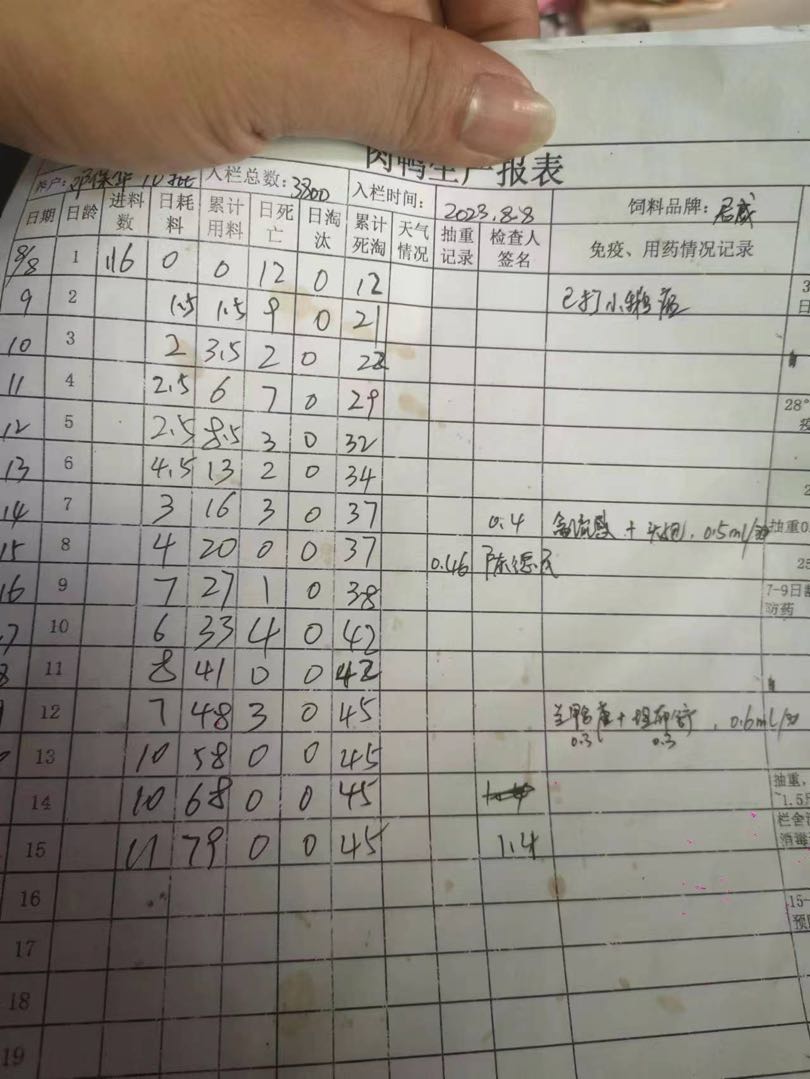 肉鸭生产报表
户: 邓保华 10批 入栏总数: 3300 入栏时间: 2023.8.8 饲料品牌: 君威
日期 日龄 进料数 日耗料 累计用料 日死亡 日淘汰 累计死淘 天气情况 抽重记录 检查人签名 免疫、用药情况记录
8/8 1 116 0 0 12 0 12
9 2 1.5 1.5 9 0 21 已打小鹅瘟
10 3 2 3.5 2 0 22
11 4 2.5 6 7 0 29 28°
12 5 2.5 8.5 3 0 32
13 6 4.5 13 2 0 34
14 7 3 16 3 0 37 0.4 禽流感 + 0.5ml/ 抽重0.
15 8 4 20 0 0 37 0.46 25
16 9 7 27 1 0 38 7-9日龄
防药
7 10 6 33 4 0 42
8 11 8 41 0 0 42
12 7 48 3 0 45 0.6ml/
0.3 0.3
13 10 58 0 0 45
14 10 68 0 0 45 抽重,
~1.5斤
15 11 79 0 0 45 1.4 栏舍
消毒
16 15-
预
17
18
19